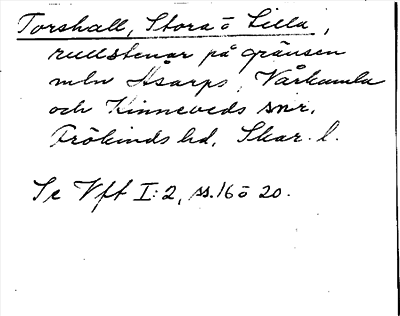 Torshall, Stora o Lilla,
rullstenar på gränsen
mln Åsarps, Vårkumla
och Kinneveds snr,
Frökinds hd, Skar. l.
Se Vft I:2, ss. 16 o 20.